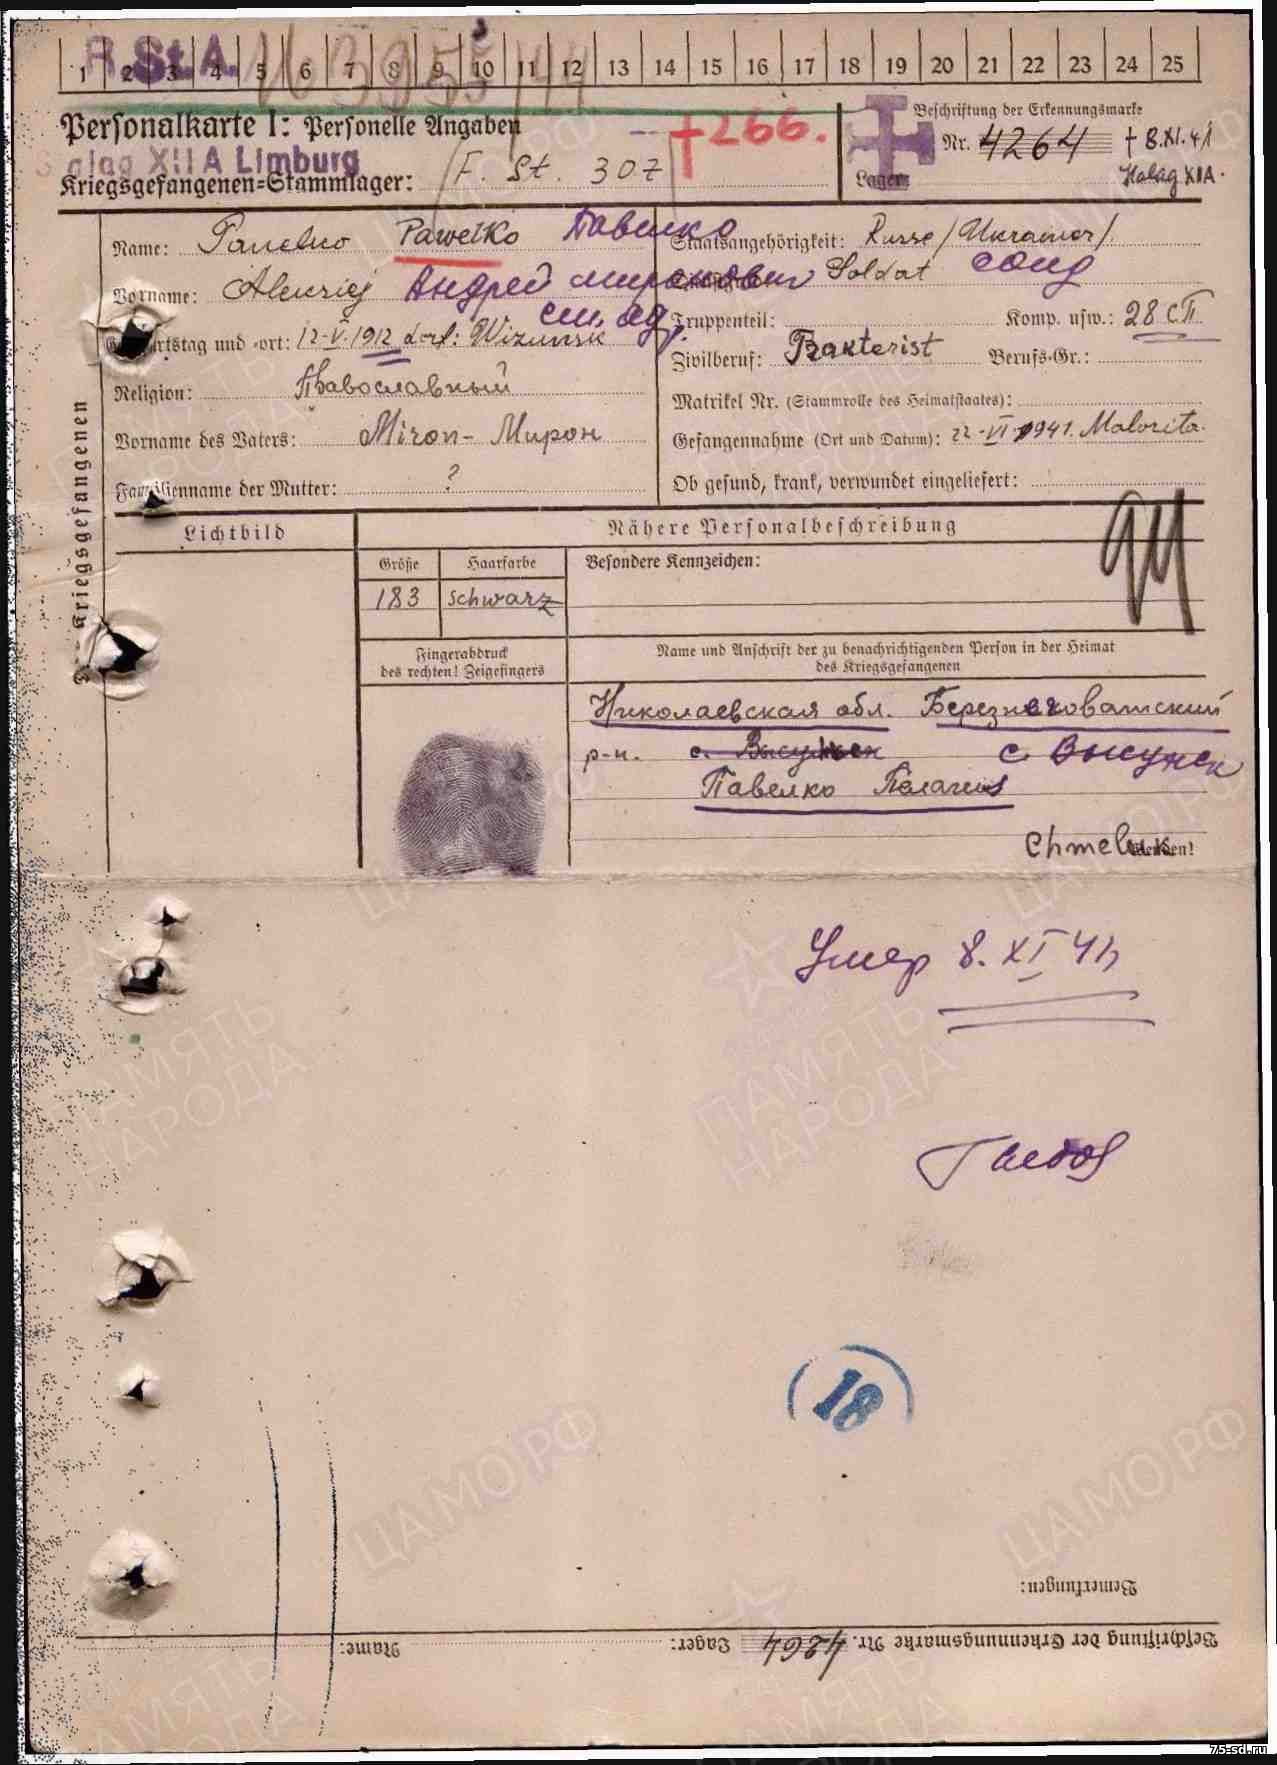 R.St.A. 163955/44
1 2 3 4 5 6 7 8 9 10 11 12 13 14 15 16 17 18 19 20 21 22 23 24 25
Personalkarte I: Personelle Angaben
†266.
Beschriftung der Erkennungsmarke
Nr. 4264 † 8.XI.41
Stalag XII A Limburg
Kriegsgefangenen=Stammlager: F. St. 307
Lager:
XIIA.
Name: Pawelko Павелко
Staatsangehörigkeit: Russe/Ukrainer/.
Vorname: Андрей Миронович
Soldat солд
Geburtstag und -ort: 12-V.1912
Truppenteil: Komp. usw.: 28 сп
Zivilberuf: Trakterist Berufs-Gr.:
Religion: Православный
Matrikel Nr. (Stammrolle des Heimatstaates):
Vorname des Vaters: Miron- Мирон
Gefangennahme (Ort und Datum): 22-VI-1941. Malorita.
Familienname der Mutter: ?
Ob gesund, krank, verwundet eingeliefert:
Kriegsgefangenen
Lichtbild
Nähere Personalbeschreibung
Größe Haarfarbe Besondere Kennzeichen:
183 schwarz
Fingerabdruck
des rechten! Zeigefingers
Name und Anschrift der zu benachrichtigenden Person in der Heimat
des Kriegsgefangenen
Николаевская обл. Березнеговатский
р-н. с. Высунск с Высунск
Павелко Пелагея
Chmeluk
Wenden!
Умер 8. XI 41
18
Bemerkungen:
Beschriftung der Erkennungsmarke Nr. 4264 Lager: Name:
ПАМЯТЬ НАРОДА
ЦАМО.РФ
75-sd.ru